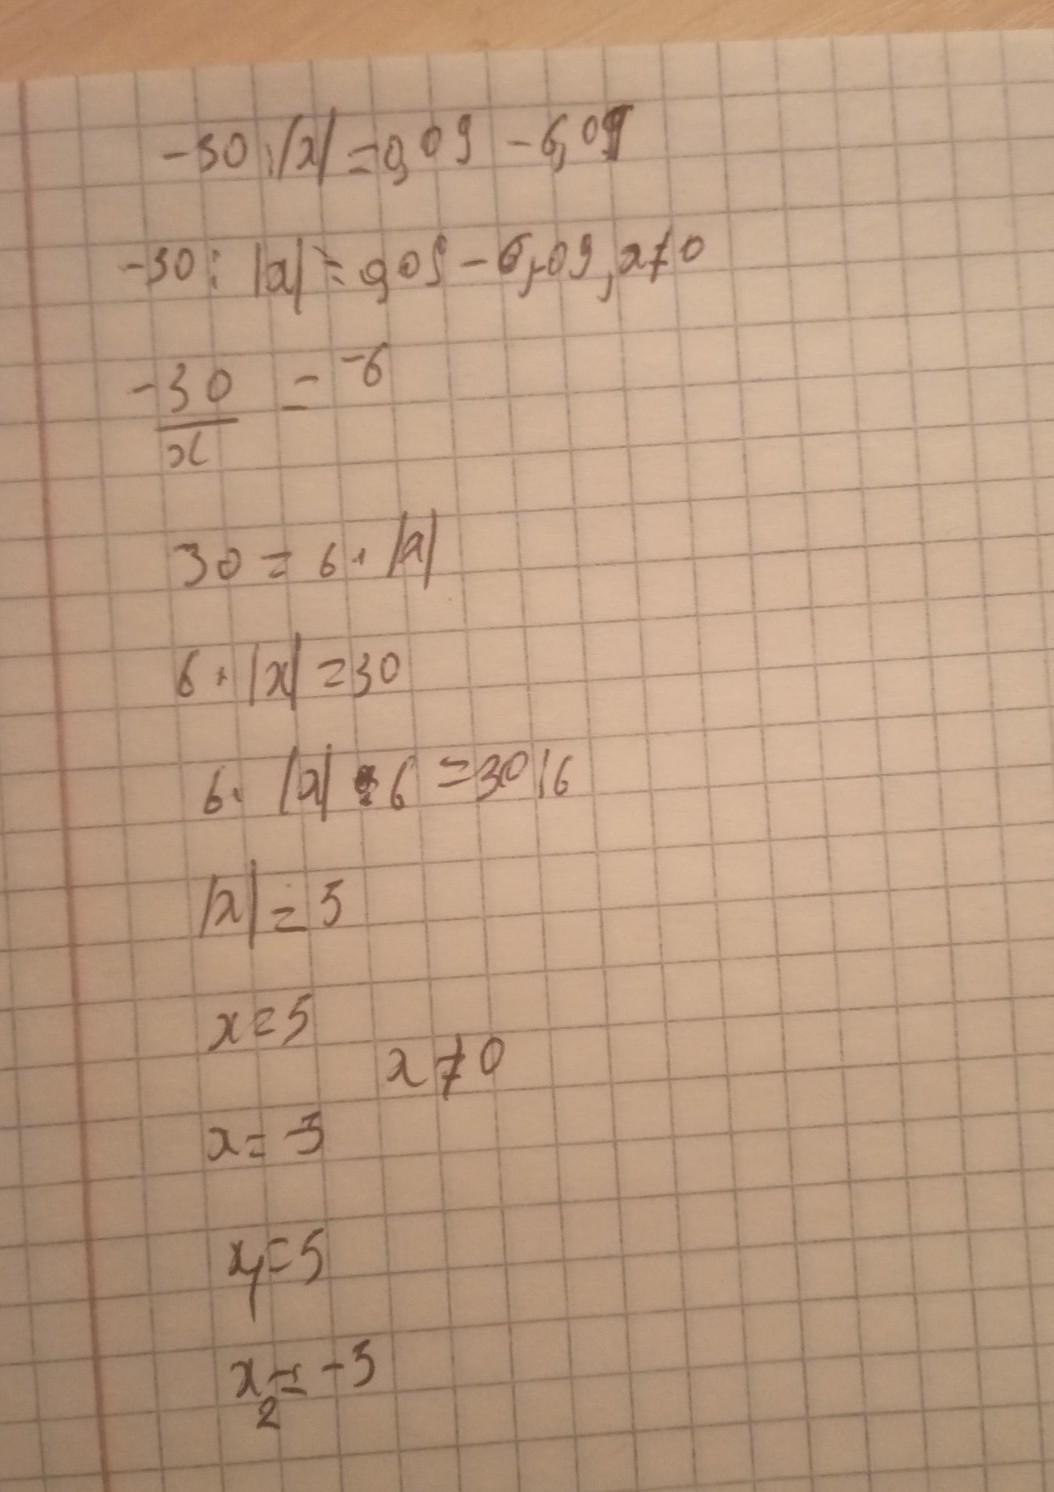 -30:|x|=0,09-6,09
-30:|x|=0,09-6,09, x≠0
-30/x=-6
30=6·|x|
6·|x|=30
6·|x|:6=30:6
|x|=5
x=5
x≠0
x=-5
x₁=5
x₂=-5